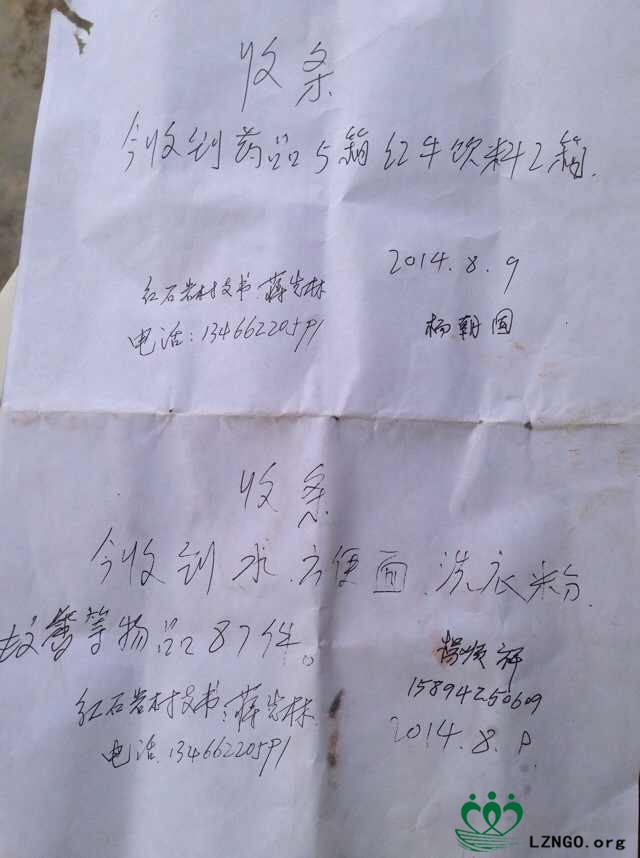 收条
今收到药品5箱红牛饮料2箱.
2014.8.9
红石岩村支书:蒋光林
电话:13466220591
杨朝国
收条
今收到水.方便面.洗衣粉.
蚊香等物品87件。
红石岩村支书:蒋光林
15894250609
电话.13466220591
2014.8.9
LZNGO.org